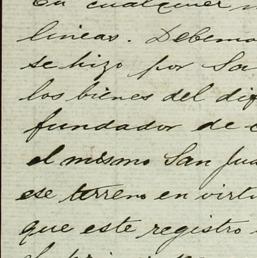 En cualquier
lineas. Debemo
se hizo por Sa
los bienes del dif
fundador de
el mismo San Jua
ese terreno en virtu
que este registro